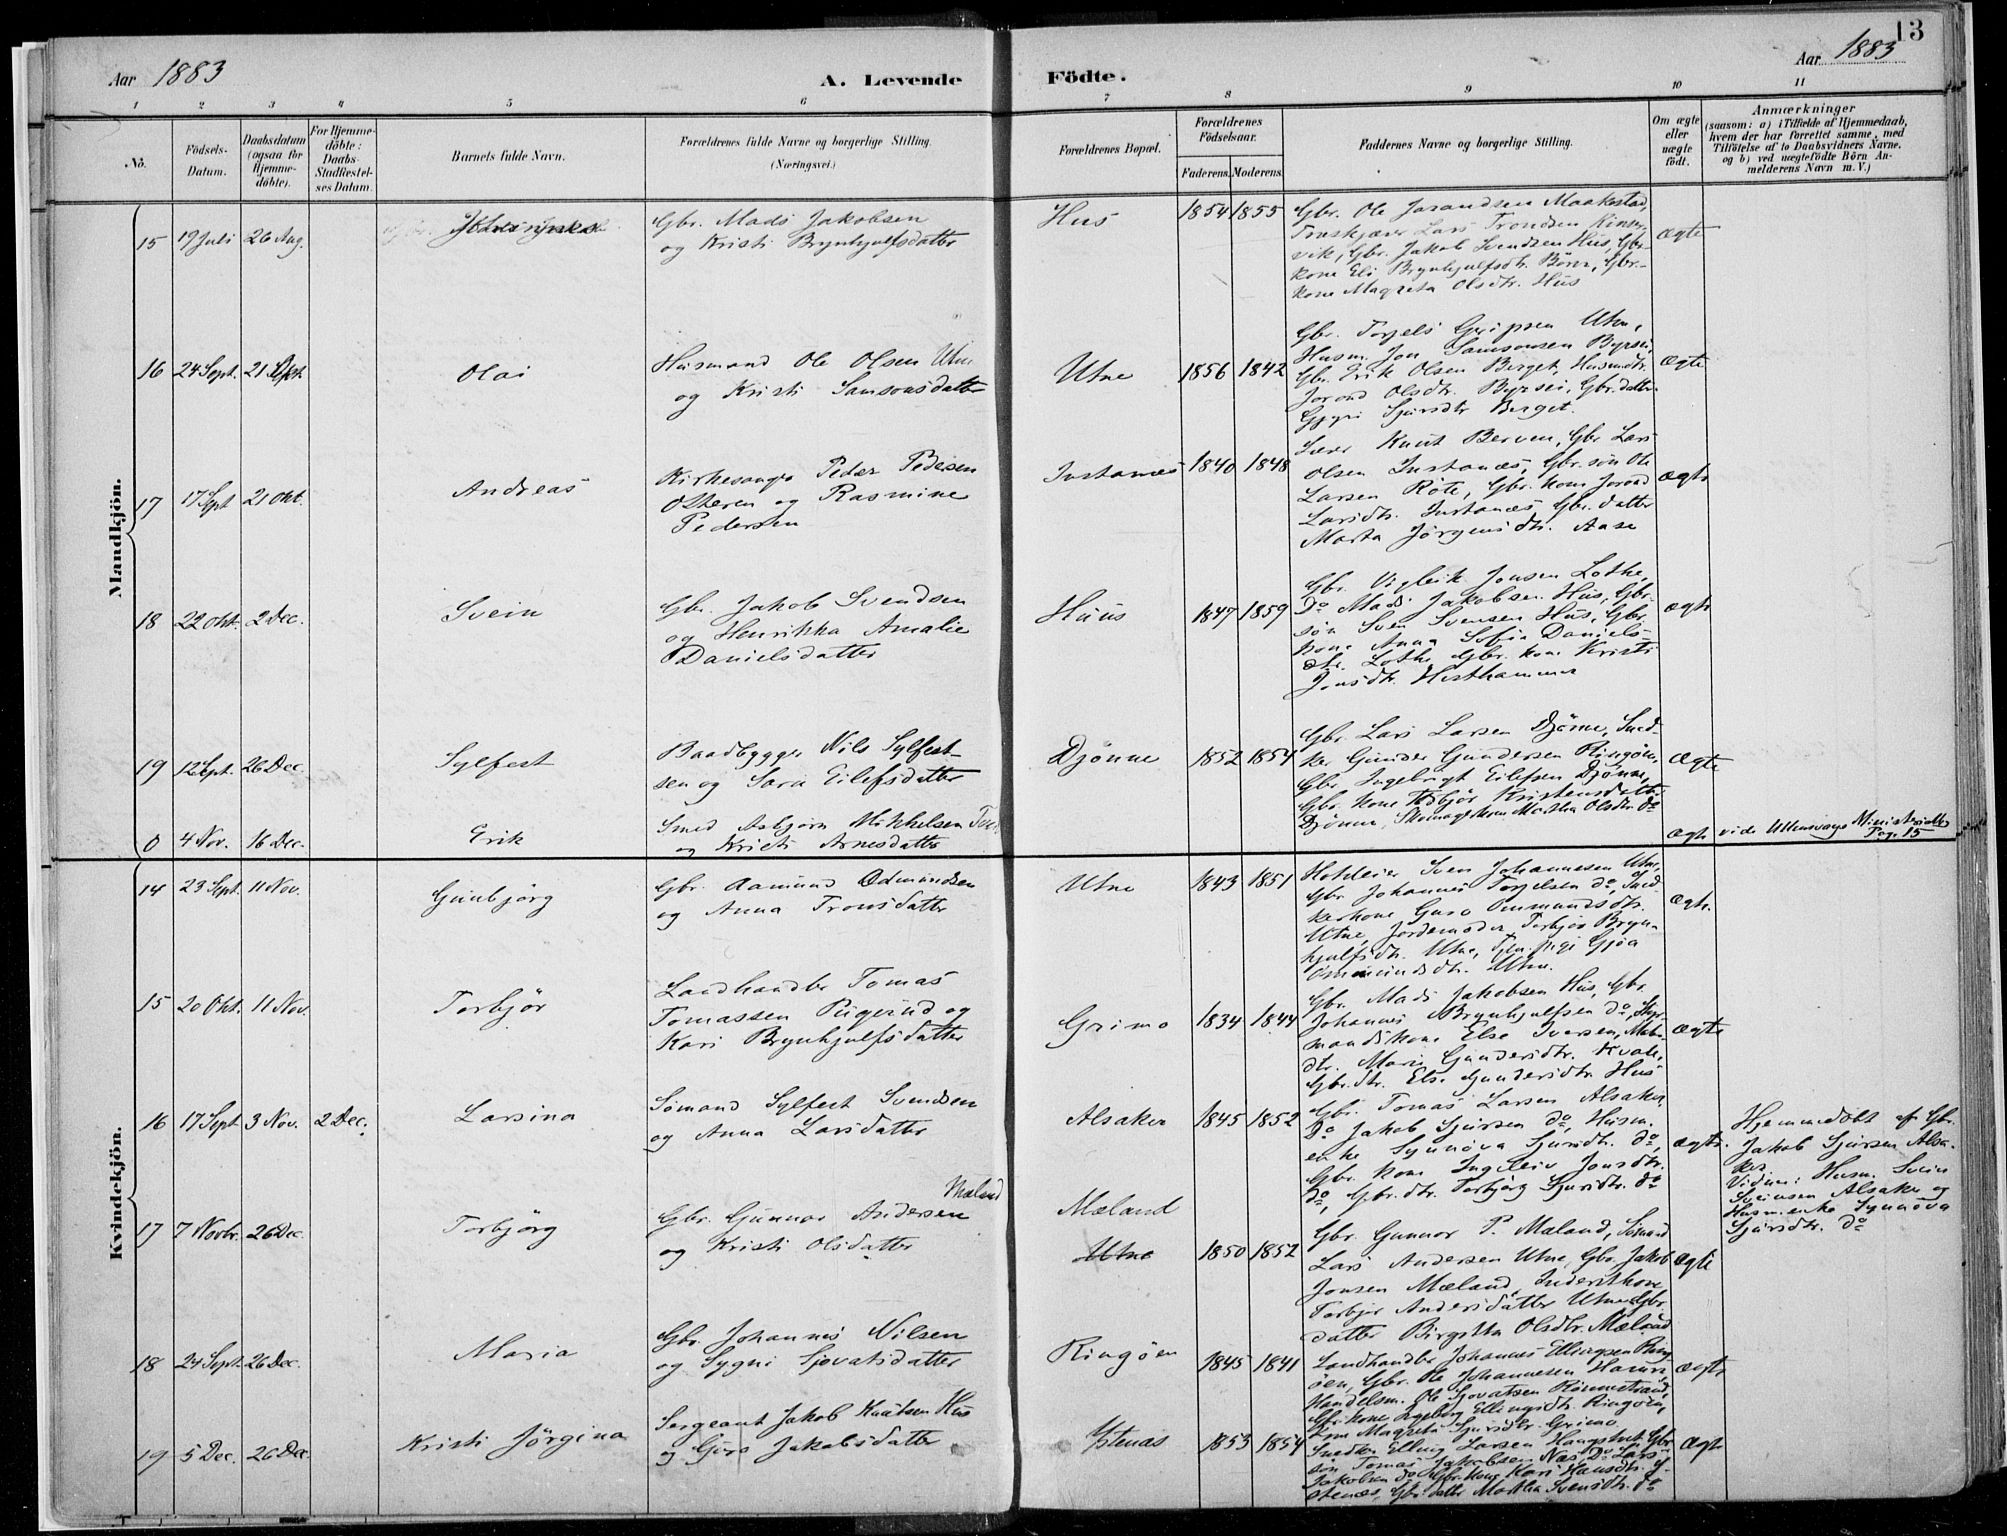 13
Aar 1883
A. Levende
Födte.
Aar 1883
1 2 3 4 5 6 7 8 9 10 11
No.
Födsels-Datum.
Daabsdatum (ogsaa for Hjemme-döbte).
For Hjemme-döbte: Daabs-Stadfæstel-ses Datum.
Barnets fulde Navn.
Forældrenes fulde Navne og borgerlige Stilling.
(Næringsvei.)
Forældrenes Bopæl.
Forældrenes Födselsaar.
Faderens. Moderens.
Faddernes Navne og borgerlige Stilling.
Om ægte eller uægte födt.
Anmærkninger
(saasom: a) i Tilfælde af Hjemmedaab,
hvem der har forrettet samme, med
Tilföielse af to Daabsvidners Navne,
og b) ved uægtefödte Börn An-
melderens Navn m. V.)
Mandkjön.
15 19 Juli 26 Aug.
Gbr. Mads Jakobsen
og Kristi Brynhjulfsdatter
Hus 1854 1855
Gbr. Ole Jorandsen Maakestad,
Lars Trondsen Kinser-
vik, Gbr. Jakob Svendsen Hus, Gbr-
kone Eli Brynhjulfsdtr. Börve, Gbr-
kone Magreta Olsdtr. Hus
ægte
16 24 Sept. 21 Okt.
Olai
Husmand Ole Olsen Utne
og Kristi Samsonsdatter
Utne 1856 1842
Gbr. Torjels Gripsen Utne,
Husm. Jon Samsonsen Byrsei,
Gbr. Erik Olsen Berget, Husmdtr.
Jorond Olsdtr. Byrsei, Gbr. datter
Sjursdtr Berget.
ægte
17 17 Sept 21 Okt.
Andreas
Kirkesanger Peder Pedersen
og Rasmine
Pedersen
Instanæs 1840 1848
Lærer Knut Berven, Gbr Lars
Olsen Instanæs, Gbr. søn Ole
Larsen Röte, Gbr. kone Jorond
Larsdtr. Instanæs, Gbr. datter
Marta Jørgensdtr. Aase
ægte
18 22 Okt. 2 Dec.
Svein
Gbr. Jakob Svendsen
og Henrikka Amalie
Danielsdatter
Huus 1847 1859
Gbr. Vigleik Jonsen Lothe,
Do Mads Jakobsen Hus, Gbr-
søn Sven Svensen Hus, Gbr.
kone Anna Sofia Daniels-
dtr. Lothe, Gbr. kone Kristi
Jonsdtr. Hesthammer
ægte
19 12 Sept. 26 Dec.
Sylfest
Baadbygger Nils Sylfest-
sen og Sara Eilefsdatter
Djönne 1852 1854
Gbr. Lars Larsen Djönne, Sned-
ker Gunder Gundersen Ringøen,
Gbr Ingebrigt Eilefsen Djönne,
Gbr. kone Torbjør Kristensdatter
Djönne, Skomagerkone Martha Olsdtr. do
ægte
0 4 Nov. 16 Dec.
Erik
Smed Asbjørn Mikkelsen
og Kristi Arnesdatter
ægte vide Ullensvangs Ministerialb.
Pag. 15
Kvindekjön.
14 23 Sept. 11 Nov.
Gunbjörg
Gbr. Aamund Odmundsen
og Anna Tronsdatter
Utne 1843 1851
Hoteleier Sven Johannesen Utne,
Gbr Johannes Torjelsen do, Sned-
kerkone Guro
Utne, Jordemoder Torbjør Bryn-
hjulfsdtr. Utne, Tjen. pige Gjøa
Utne.
ægte.
15 20 Okt. 11 Nov.
Torbjör
Landhandler Tomas
Tomassen Pügerud og
Kari Brynhjulfsdatter
Grimo 1834 1844
Gbr. Mads Jakobsen Hus, Gbr.
Johannes Brynhjulfsen do,
mandskone Else Iversen,
dtr. Mari Gundersdtr. Kvale,
Gbr. dtr. Else Gundersdtr. Hus
ægte
16 17 Sept 3 Nov. 2 Dec.
Larsina
Sømand Sylfest Svendsen
og Anna Larsdatter
Alsaker 1845 1852
Gbr. Tomas Larsen Alsaker,
Do Jakob Sjursen do, Husm.
enke Synnøva Sjursdtr. do,
Gbr. kone Ingeleiv Jonsdtr.
do, Gbr. dtr. Torbjörg Sjursdtr. do
ægte.
Hjemmedøbt af Gbr.
Jakob Sjursen Alsa-
ker
Vidner: Husm. Svein
Sveinsen Alsaker og
Husm enke Synnøva
Sjursdtr. do
17 7 Novbr. 26 Dec.
Torbjörg
Gbr. Gunnar Andersen Mæland
og Kristi Olsdatter
Mæland
Utne 1850 1852
Gbr. Gunnar P. Mæland, Sømand
Lars Andersen Utne, Gbr. Jakob
Jonsen Mæland, Inderstkone
Torbjør Andersdatter Utne, Gbr.
datter Birgitta Olsdtr. Mæland
ægte
18 24 Sept. 26 Dec.
Maria
Gbr. Johannes Nilsen
og Sygni Sjovatsdatter
Ringöen 1845 1841
Landhandler Johannes Ellingsen Ring-
öen, Gbr. Ole Johannesen
Handelsm. Ole Sjovatsen
Gbr. kone Ingeborg Ellingsdtr. Ringöen,
Magreta Sjursdtr. Grimo
ægte
19 5 Dec. 26 Dec.
Kristi Jörgina
Sergeant Jakob Knutsen Hus
og Guro Jakobsdatter
Ystenæs 1853 1854
Snedker Elling Larsen Gbr-
søn Tomas Jakobsen Næs, Do Lars
Jakobsen do, Gbr. kone Kari Hansdtr. Y-
stenæs, Gbr. datter Martha Svensdtr. do
ægte